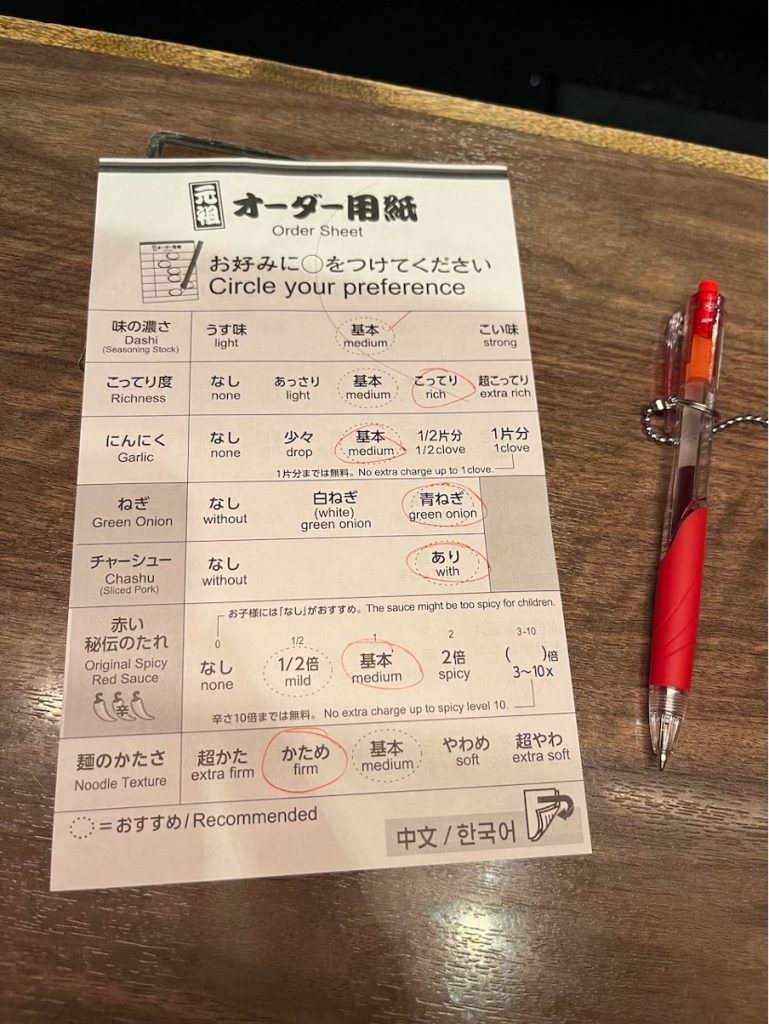 元祖 オーダー用紙
Order Sheet
お好みに○をつけてください
Circle your preference
味の濃さ うす味 基本 こい味
Dashi light medium strong
(Seasoning Stock)
こってり度 なし あっさり 基本 こってり 超こってり
Richness none light medium rich extra rich
にんにく なし 少々 基本 1/2片分 1片分
Garlic none drop medium 1/2clove 1clove
1片分までは無料。 No extra charge up to 1clove.
ねぎ なし 白ねぎ 青ねぎ
Green Onion without (white) green onion
green onion
チャーシュー なし あり
Chashu without with
(Sliced Pork)
お子様には「なし」がおすすめ。 The sauce might be too spicy for children.
赤い
秘伝のたれ
Original Spicy
Red Sauce
辛
0 1/2 1 2 3-10
なし 1/2倍 基本 2倍 ( )倍
none mild medium spicy 3〜10x
辛さ10倍までは無料。 No extra charge up to spicy level 10.
麺のかたさ 超かた かため 基本 やわめ 超やわ
Noodle Texture extra firm firm medium soft extra soft
=おすすめ/Recommended
中文 / 한국어